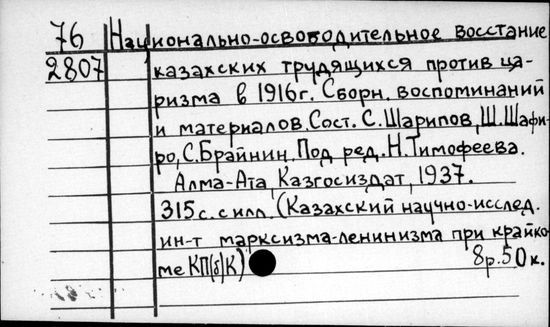 76 Национально-освободительное восстание
2807 казахских трудящихся против ца-
ризма в 1916г. Сборн. воспоминаний
и материалов. Сост. С. Шарипов, Ш. Шафи-
ро, С. Брайнин. Под ред. Н. Тимофеева.
Алма-Ата, Казгосиздат, 1937.
315 с. с илл. (Казахский научно-исслед.
ин-т марксизма-ленинизма при крайко-
ме КП(б)К) 8р. 50к.